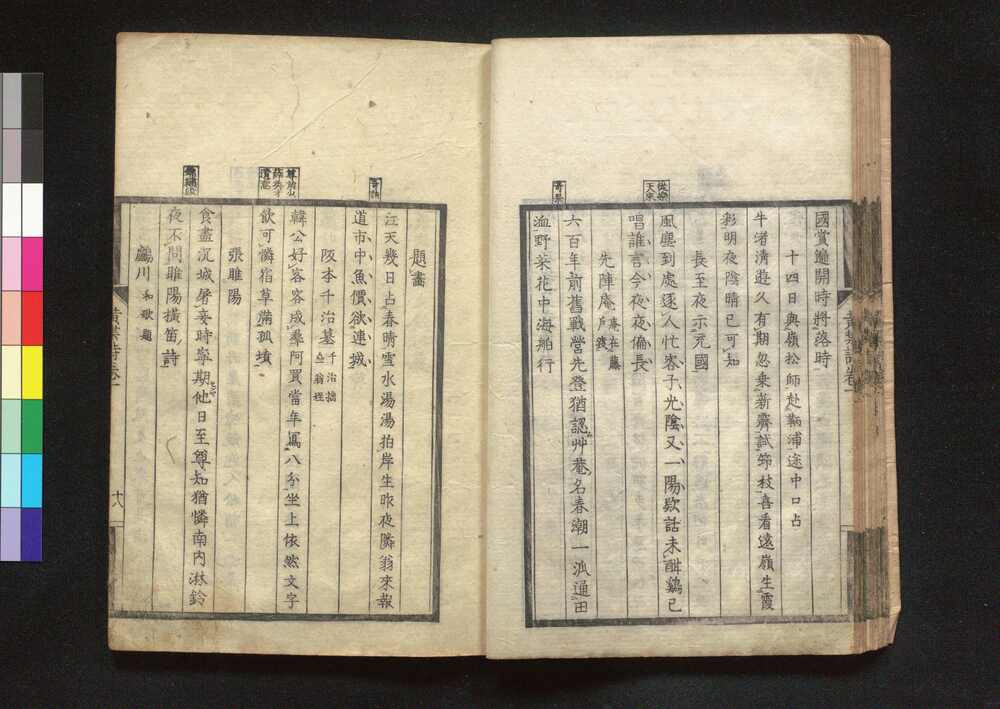 國賞遍開時將落時
十四日與嶺松師赴鞆浦途中口占
牛渚清遊久有期忽乘新霽試筇枝喜看遠嶺生霞
彩明夜陰晴已可知
長至夜示元國
風塵到處逐人忙客子光陰又一陽歎話未酣鷄已
唱誰言今夜夜偏長
先陣庵庵在藤
戶
六百年前舊戰營先登猶認艸菴名春潮一派通田
洫野菜花中海舶行
題畫
江天幾日占春晴雪水湯湯拍岸生昨夜隣翁來報
道市中魚價欲連城
阪本千治墓千治拙
翁姪
韓公好客客成羣阿買當年寫八分坐上依然文字
飲可憐宿草滿孤墳
張睢陽
食盡沉城屠妾時寧期他日至尊知猶憐南內淋鈴
夜不問睢陽橫笛詩
川和歌題
十八